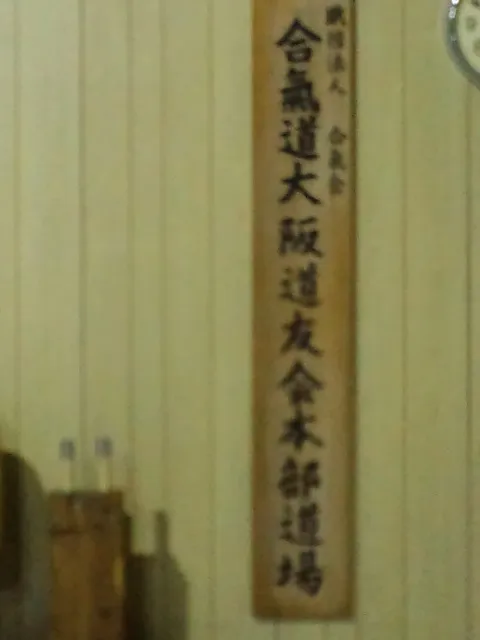 財団法人 合氣会
合氣道大阪道友会本部道場